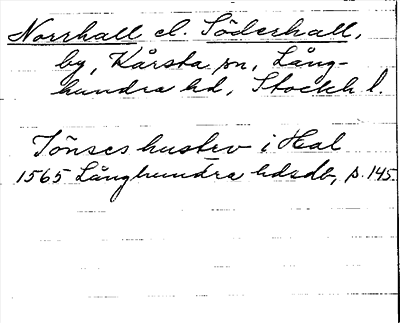 Norrhall el. Söderhall,
by, Kårsta sn, Lång-
hundra hd, Stockh l.
Jönses hustrv i Hal
1565 Långhundra hdsdb, s. 145.